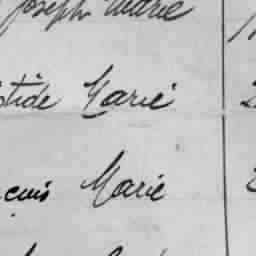 Joseph Marie
stide Marie
çois Marie